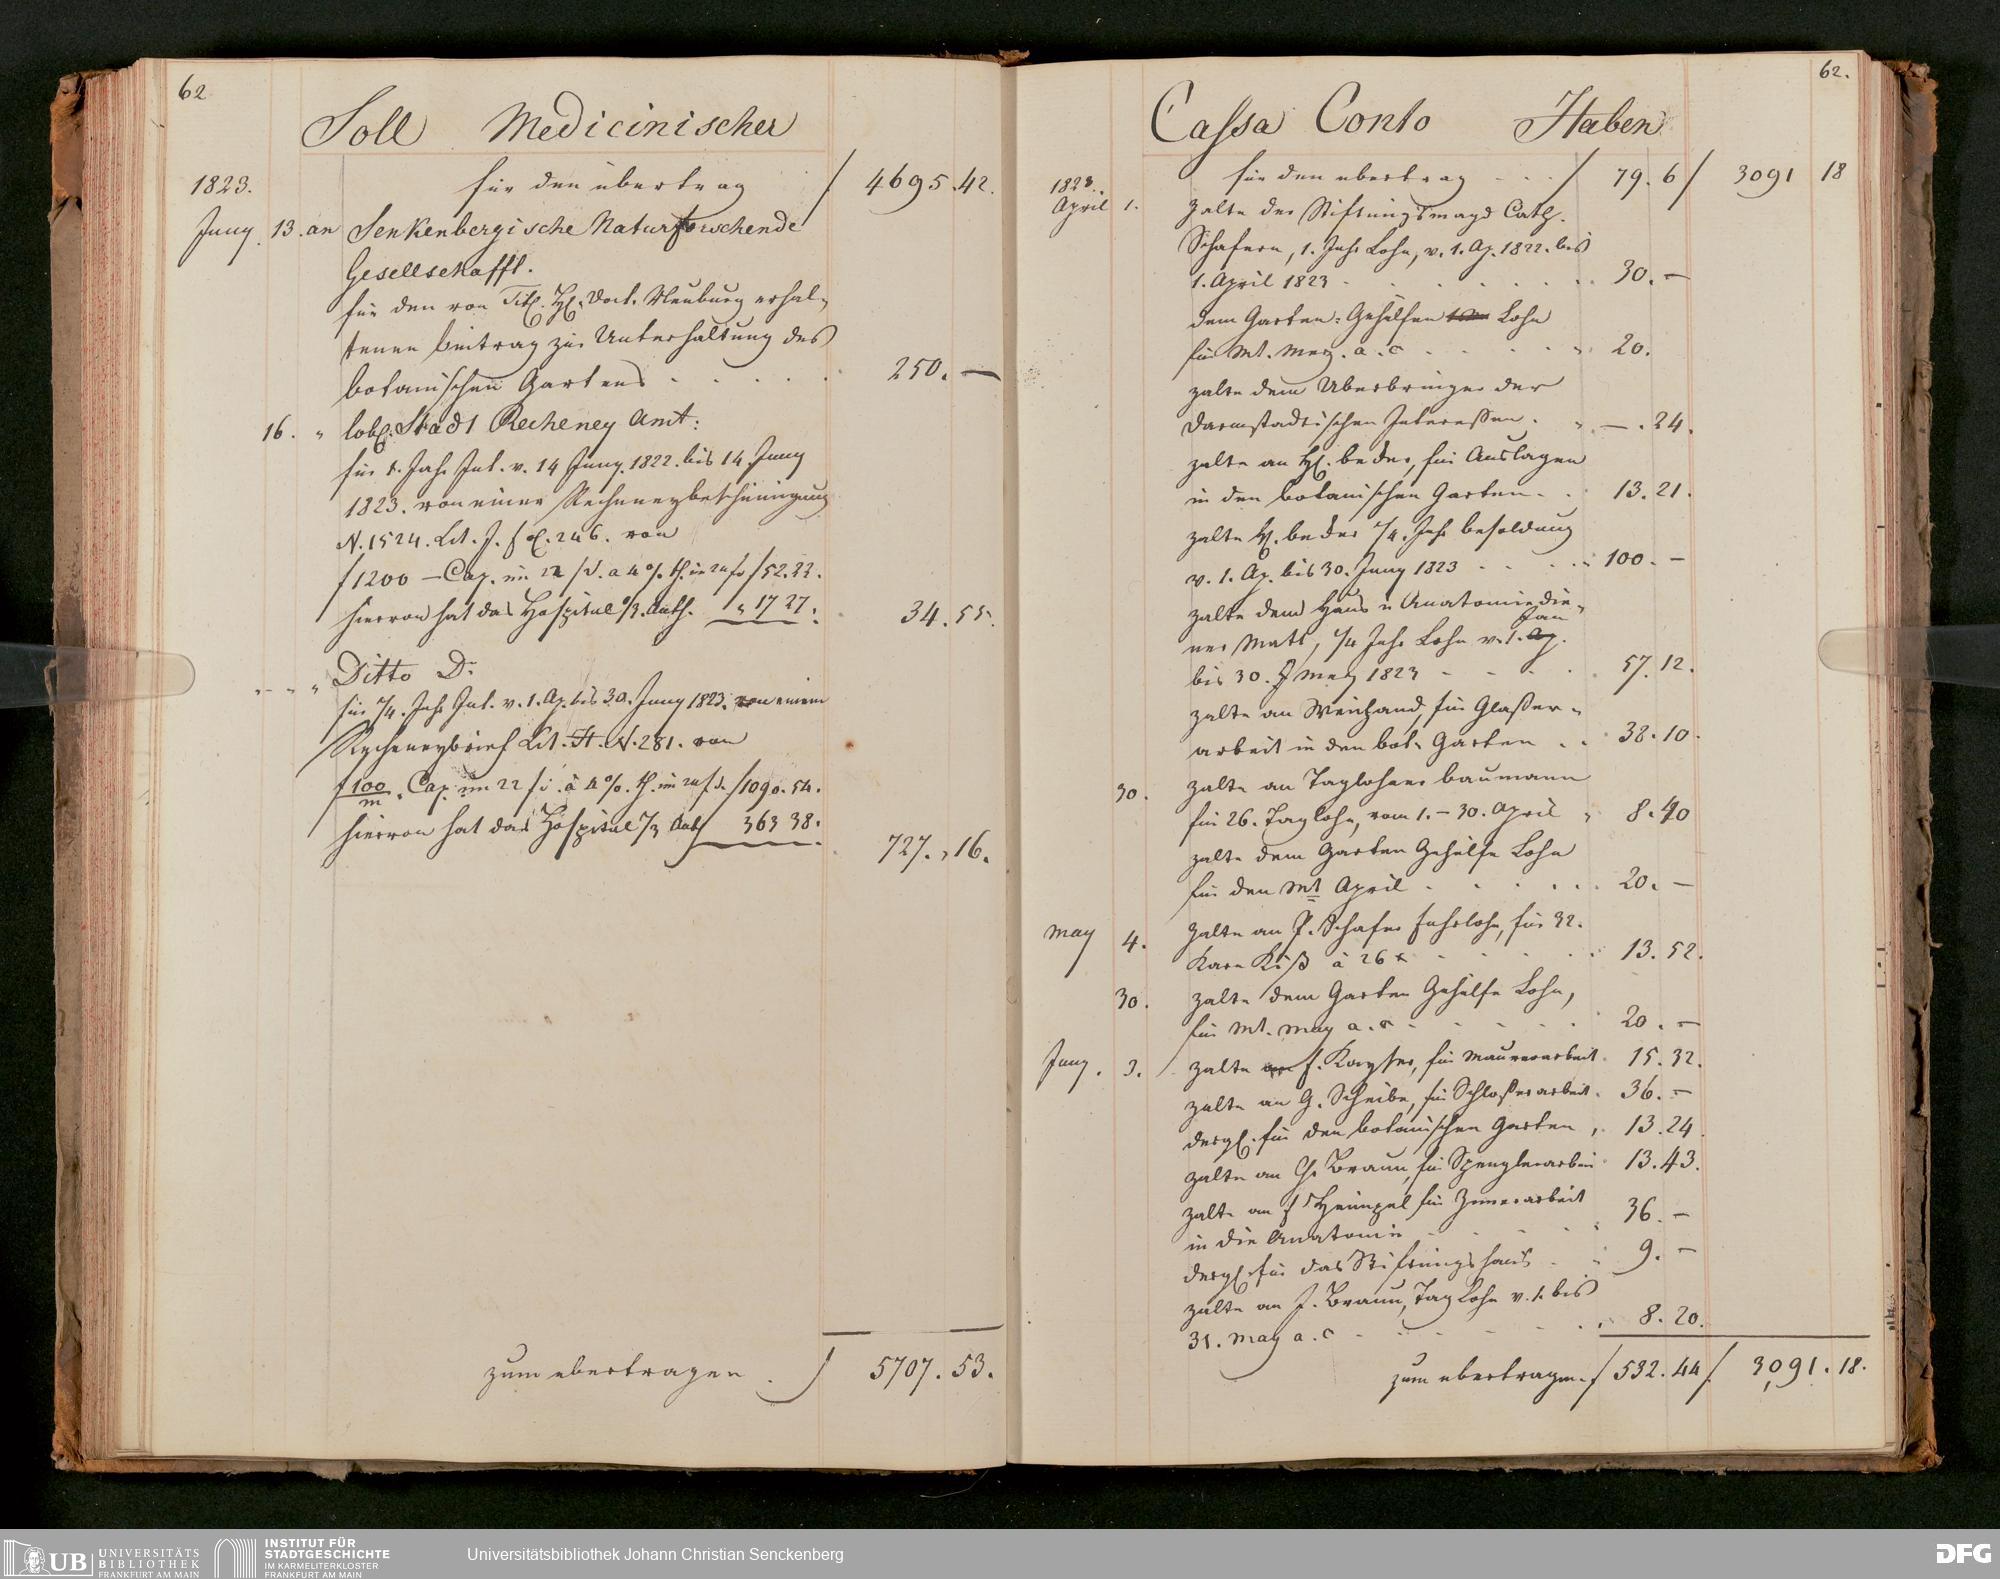 62
Soll Medicinischer
1823. für den übertrag f 4695.42.
Juny. 13. an Senkenbergische Naturforschende
Gesellschafft.
für den von Tit. H. Doct. Neuburg erhal-
tenen beitrag zur Unterhaltung des
botanischen Gartens . . . . . 250.—
16. " lobl. Stadt Recheney Amt:
für 1. Jahr Int. v. 14 Juny. 1822. bis 14 Juny
1823. von einer Recheneybescheinigung
N. 1524. Lit. J. fol. 246. von
f 1200 — Cap. im 22 f. a 4 %. th. in 24 f. f 52.22.
hiervon hat das Hospital 1/3. Anth. " 17 27. 34.55.
- - - " Ditto D.
für 1/4. Jahr Int. v. 1. Ap. bis 30. Juny 1823. von einem
Recheneybrief Lit. H. N. 281. von
f 100/m. Cap. im 22 f. à 4 %. th. im 24 f. f 1090.54.
hiervon hat das Hospital 1/3 Anth 363 38. 727.,16.
zum übertragen . f 5707.53.
62.
Cassa Conto Haben
1823. für den übertrag - - . f 79.6 f 3091 18
April 1. zalte der Stiftungsmagd Cath.
Schafern, 1. Jahr Lohn, v. 1. Ap. 1822. bis
1. April 1823 . . . . . . 30.—
dem Garten: Gehülfen Lohn
für Mt. Merz. a. c . . . . 20.
zalte dem Überbringer der
Darmstadtischen Interessen. " —.24.
zalte an H. beder, für Auslagen
in den botanischen Garten. . 13.21.
zalte H. beder 1/4. Jahr besoldung
v. 1. Ap. bis 30. Juny 1823 . . . 100.—
zalte dem Haus u Anatomiedie-
Jan
ner Matt, 1/4 Jahr Lohn v. 1. Ap.
bis 30. Merz 1823 - - - . 57.12.
zalte an Weichand, für Glaßer-
arbeit in den bot. Garten . . 38.10.
30. zalte an Taglohner baumann
für 26. Taglohn, vom 1. — 30. April " 8.40
zalte dem Garten Gehülfe Lohn
für den Mt April . . . . . 20.—
may 4. zalte an P. Schafer Fuhrlohn, für 32.
Karn Kiß à 26 x . . . . . 13.52.
30. zalte dem Garten Gehülfe Lohn,
für Mt. may a. c . . . . . 20.—
Juny. 3. zalte an f. Kayser, für Maurerarbeit. 15.32.
zalte an G. Scheibe, für Schlosserarbeit. 36.—
dergl. für den botanischen Garten, . 13.24
zalte an Ch. Braun, für Spenglerarbeit. 13.43.
zalte an Heimpel für Zimerarbeit
in die Anatomie . . . . . 36.—
dergl. für das Stiftungshaus . . 9.—
zalte an J. Braun, Tag Lohn v. 1. bis
31. may a. c - - - - - . 8.20.
zum übertragen. f 532.44 f 3091.18.
UB UNIVERSITÄTS
BIBLIOTHEK
FRANKFURT AM MAIN
INSTITUT FÜR
STADTGESCHICHTE
IM KARMELITERKLOSTER
FRANKFURT AM MAIN
Universitätsbibliothek Johann Christian Senckenberg
DFG